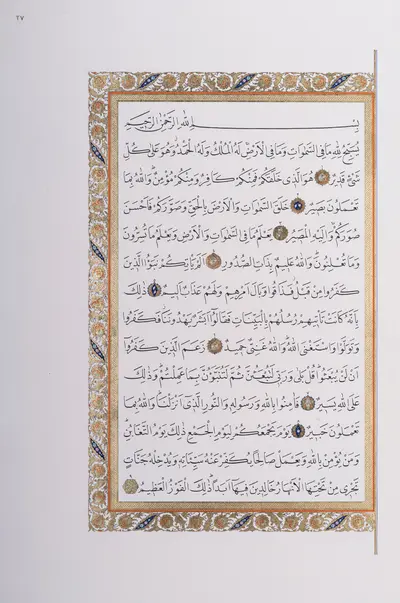 ٢٧
بِسْمِ اللهِ الرَّحْمٰنِ الرَّحِيمِ
يُسَبِّحُ لِلّٰهِ مَا فِي السَّمٰوَاتِ وَمَا فِي الْاَرْضِ لَهُ الْمُلْكُ وَلَهُ الْحَمْدُ وَهُوَ عَلٰى كُلِّ
شَيْءٍ قَدِيرٌ هُوَ الَّذِي خَلَقَكُمْ فَمِنْكُمْ كَافِرٌ وَمِنْكُمْ مُؤْمِنٌ وَاللهُ بِمَا
تَعْمَلُونَ بَصِيرٌ خَلَقَ السَّمٰوَاتِ وَالْاَرْضَ بِالْحَقِّ وَصَوَّرَكُمْ فَاَحْسَنَ
صُوَرَكُمْ وَاِلَيْهِ الْمَصِيرُ يَعْلَمُ مَا فِي السَّمٰوَاتِ وَالْاَرْضِ وَيَعْلَمُ مَا تُسِرُّونَ
وَمَا تُعْلِنُونَ وَاللهُ عَلِيمٌ بِذَاتِ الصُّدُورِ اَلَمْ يَأْتِكُمْ نَبَؤُا الَّذِينَ
كَفَرُوا مِنْ قَبْلُ فَذَاقُوا وَبَالَ اَمْرِهِمْ وَلَهُمْ عَذَابٌ اَلِيمٌ ذٰلِكَ
بِاَنَّهُ كَانَتْ تَأْتِيهِمْ رُسُلُهُمْ بِالْبَيِّنَاتِ فَقَالُوا اَبَشَرٌ يَهْدُونَنَا فَكَفَرُوا
وَتَوَلَّوْا وَاسْتَغْنَى اللهُ وَاللهُ غَنِيٌّ حَمِيدٌ زَعَمَ الَّذِينَ كَفَرُوا
اَنْ لَنْ يُبْعَثُوا قُلْ بَلٰى وَرَبِّي لَتُبْعَثُنَّ ثُمَّ لَتُنَبَّؤُنَّ بِمَا عَمِلْتُمْ وَذٰلِكَ
عَلَى اللهِ يَسِيرٌ فَاٰمِنُوا بِاللهِ وَرَسُولِهِ وَالنُّورِ الَّذِي اَنْزَلْنَا وَاللهُ بِمَا
تَعْمَلُونَ خَبِيرٌ يَوْمَ يَجْمَعُكُمْ لِيَوْمِ الْجَمْعِ ذٰلِكَ يَوْمُ التَّغَابُنِ
وَمَنْ يُؤْمِنْ بِاللهِ وَيَعْمَلْ صَالِحًا يُكَفِّرْ عَنْهُ سَيِّئَاتِهِ وَيُدْخِلْهُ جَنَّاتٍ
تَجْرِي مِنْ تَحْتِهَا الْاَنْهَارُ خَالِدِينَ فِيهَا اَبَدًا ذٰلِكَ الْفَوْزُ الْعَظِيمُ